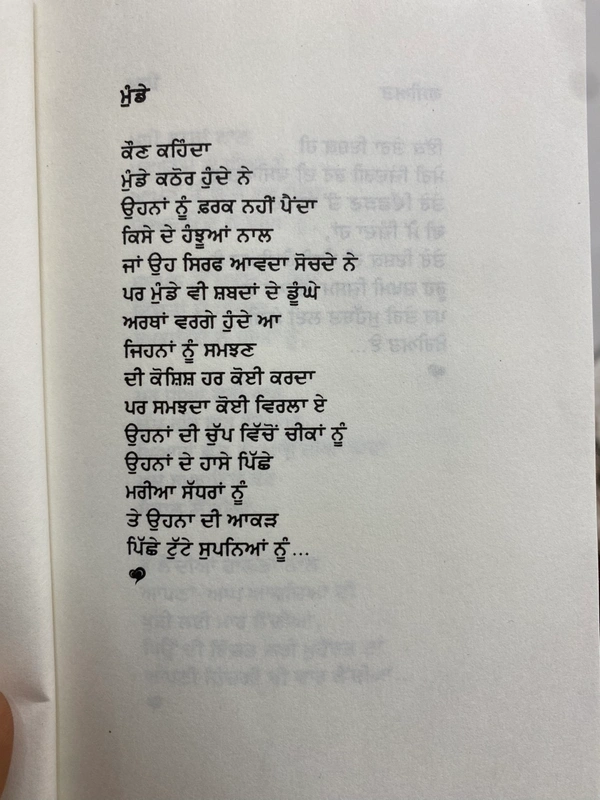 ਮੁੰਡੇ
ਕੌਣ ਕਹਿੰਦਾ
ਮੁੰਡੇ ਕਠੋਰ ਹੁੰਦੇ ਨੇ
ਉਹਨਾਂ ਨੂੰ ਫ਼ਰਕ ਨਹੀਂ ਪੈਂਦਾ
ਕਿਸੇ ਦੇ ਹੰਝੂਆਂ ਨਾਲ
ਜਾਂ ਉਹ ਸਿਰਫ ਆਵਦਾ ਸੋਚਦੇ ਨੇ
ਪਰ ਮੁੰਡੇ ਵੀ ਸ਼ਬਦਾਂ ਦੇ ਡੂੰਘੇ
ਅਰਥਾਂ ਵਰਗੇ ਹੁੰਦੇ ਆ
ਜਿਹਨਾਂ ਨੂੰ ਸਮਝਣ
ਦੀ ਕੋਸ਼ਿਸ਼ ਹਰ ਕੋਈ ਕਰਦਾ
ਪਰ ਸਮਝਦਾ ਕੋਈ ਵਿਰਲਾ ਏ
ਉਹਨਾਂ ਦੀ ਚੁੱਪ ਵਿੱਚੋਂ ਚੀਕਾਂ ਨੂੰ
ਉਹਨਾਂ ਦੇ ਹਾਸੇ ਪਿੱਛੇ
ਮਰੀਆ ਸੱਧਰਾਂ ਨੂੰ
ਤੇ ਉਹਨਾ ਦੀ ਆਕੜ
ਪਿੱਛੇ ਟੁੱਟੇ ਸੁਪਨਿਆਂ ਨੂੰ...